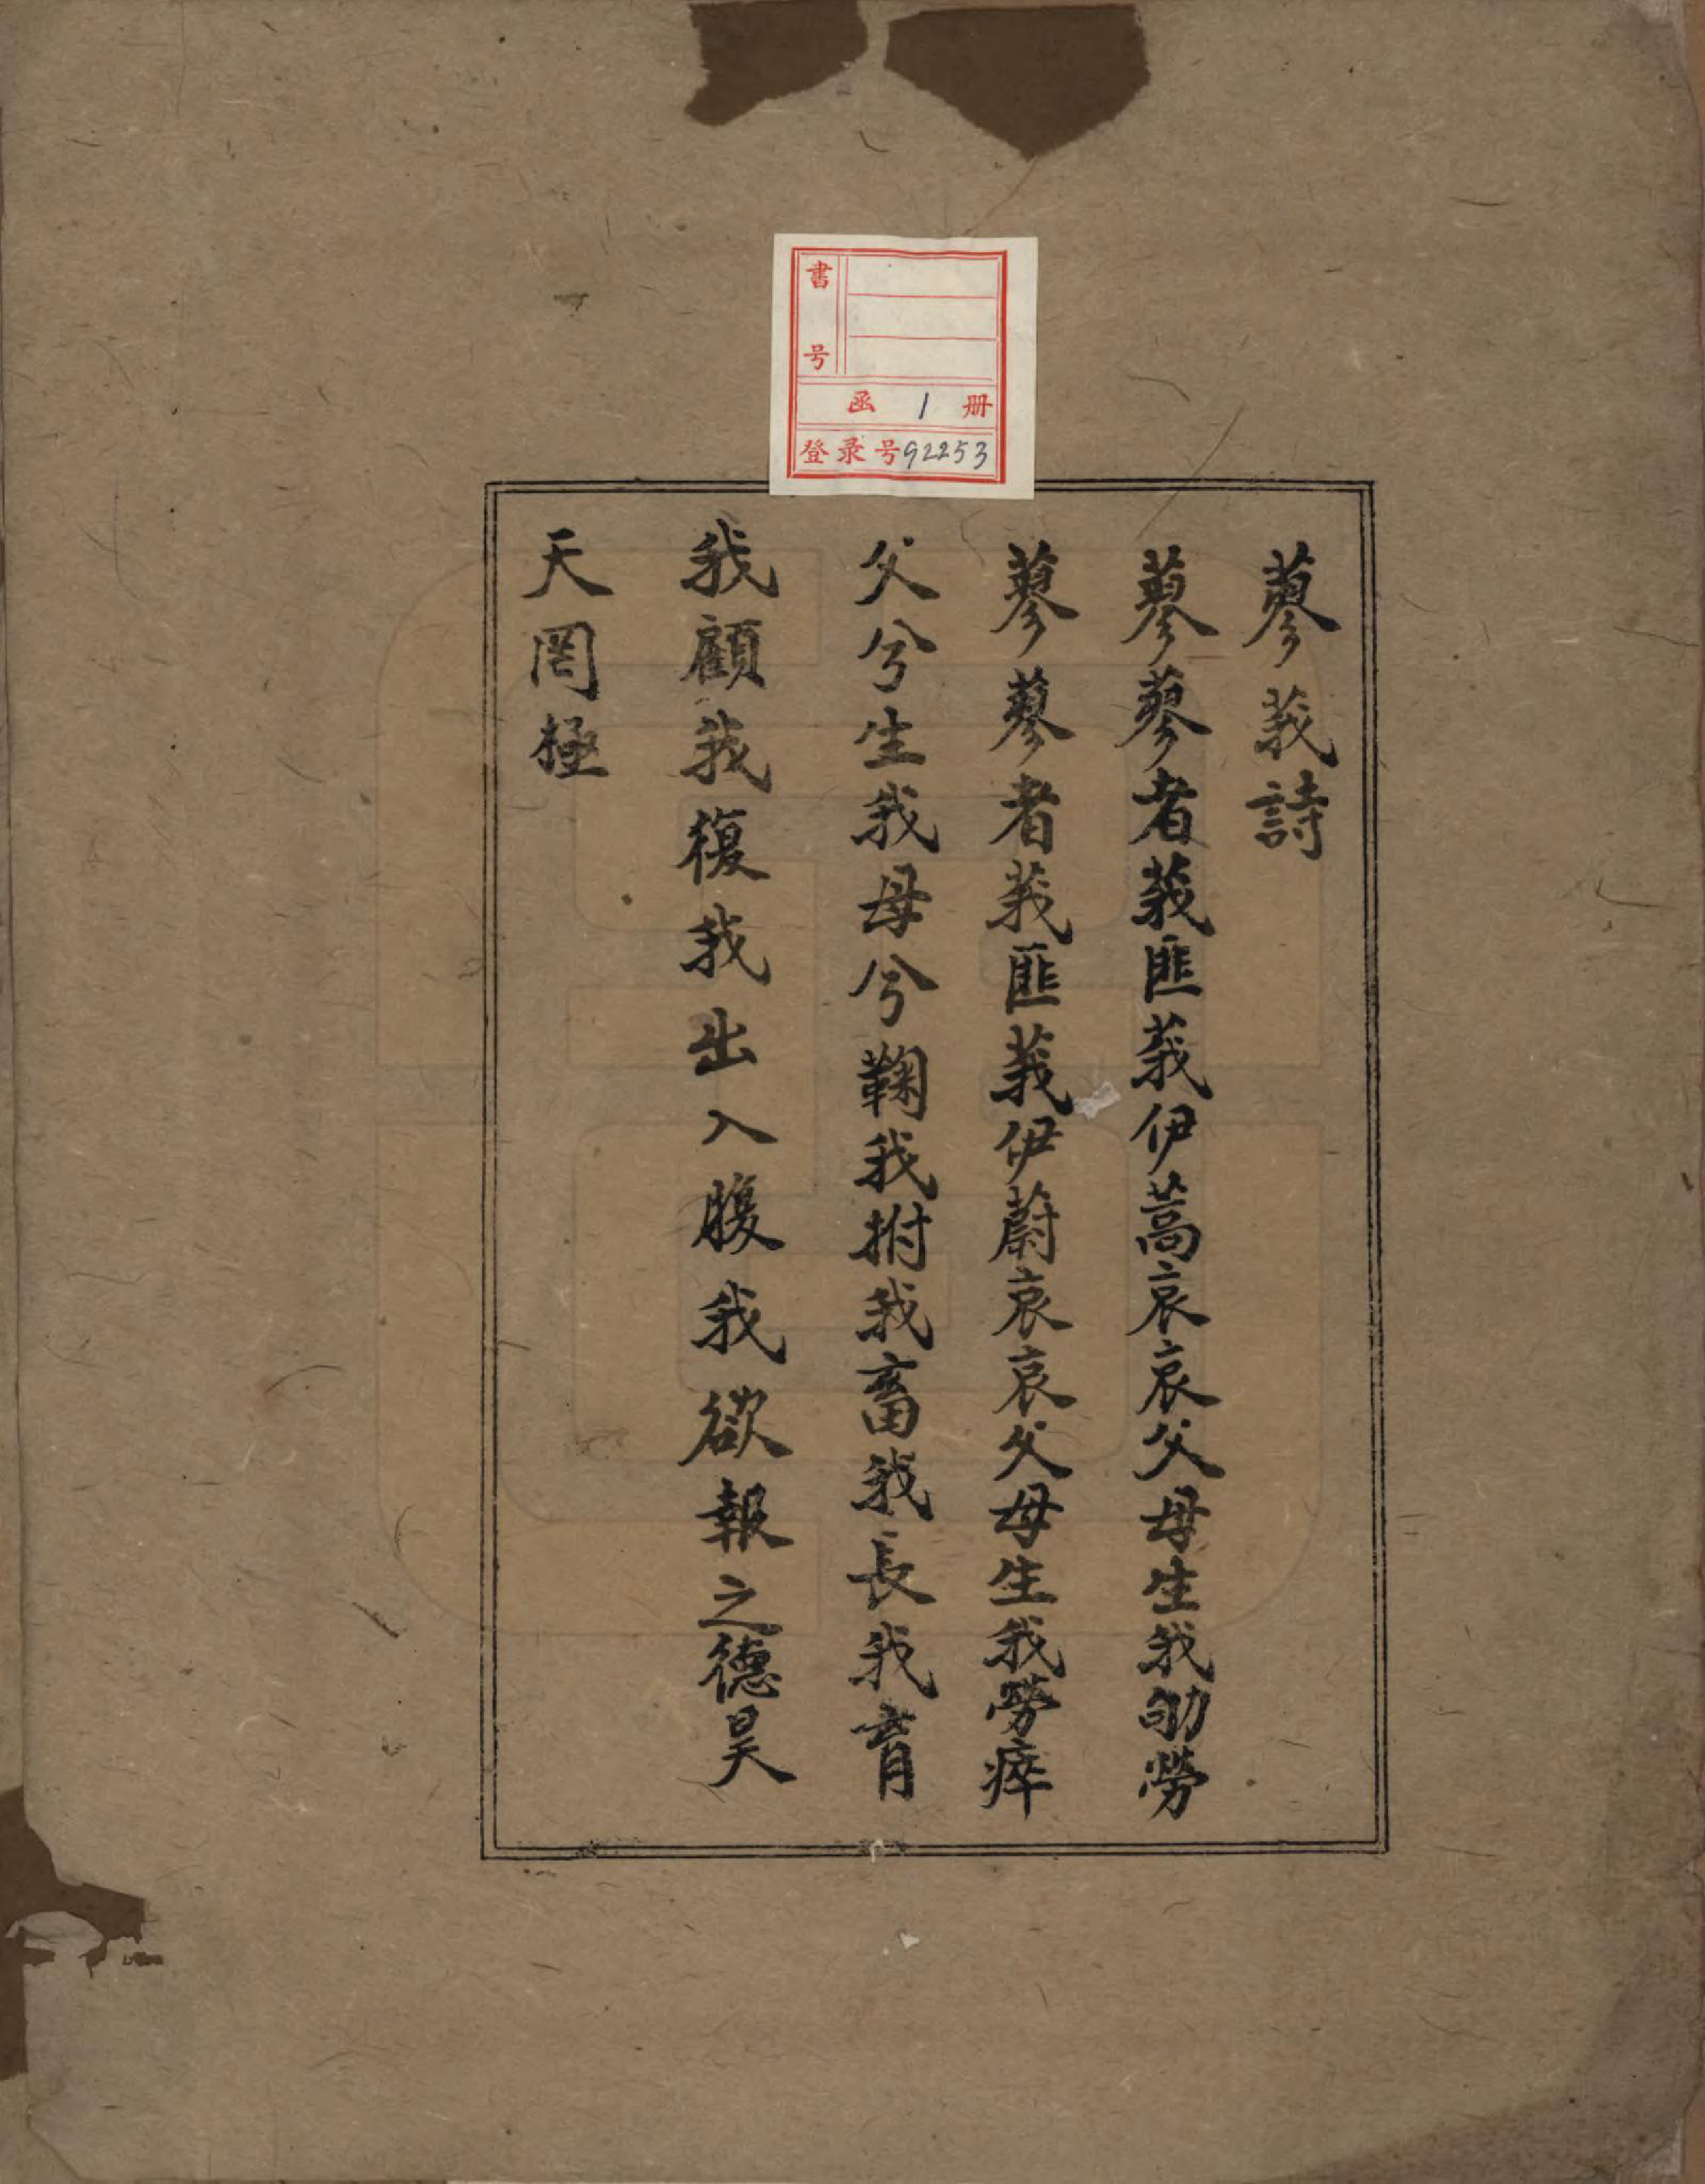 書号
函 1 册
登录号92253
蓼莪詩
蓼蓼者莪匪莪伊蒿哀哀父母生我劬勞
蓼蓼者莪匪莪伊蔚哀哀父母生我勞瘁
父兮生我母兮鞠我拊我畜我長我育
我顧我復我出入腹我欲報之德昊
天罔極